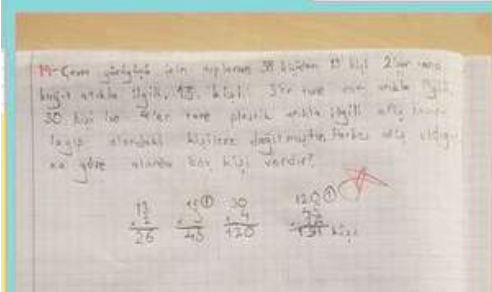 19- Çevre için toplanan 58 kişiden 13 kişi 2'şer tane
kağıt atıkla ilgili, 15 kişi 3'er tane cam atıkla ilgili,
30 kişi ise 4'er tane plastik atıkla ilgili afiş
alandaki kişilere dağıtmıştır. Herkes afiş aldığı
na göre alanda kaç kişi vardır?
13 15 30 120
x 2 x 4
26 45 120 191 kişi